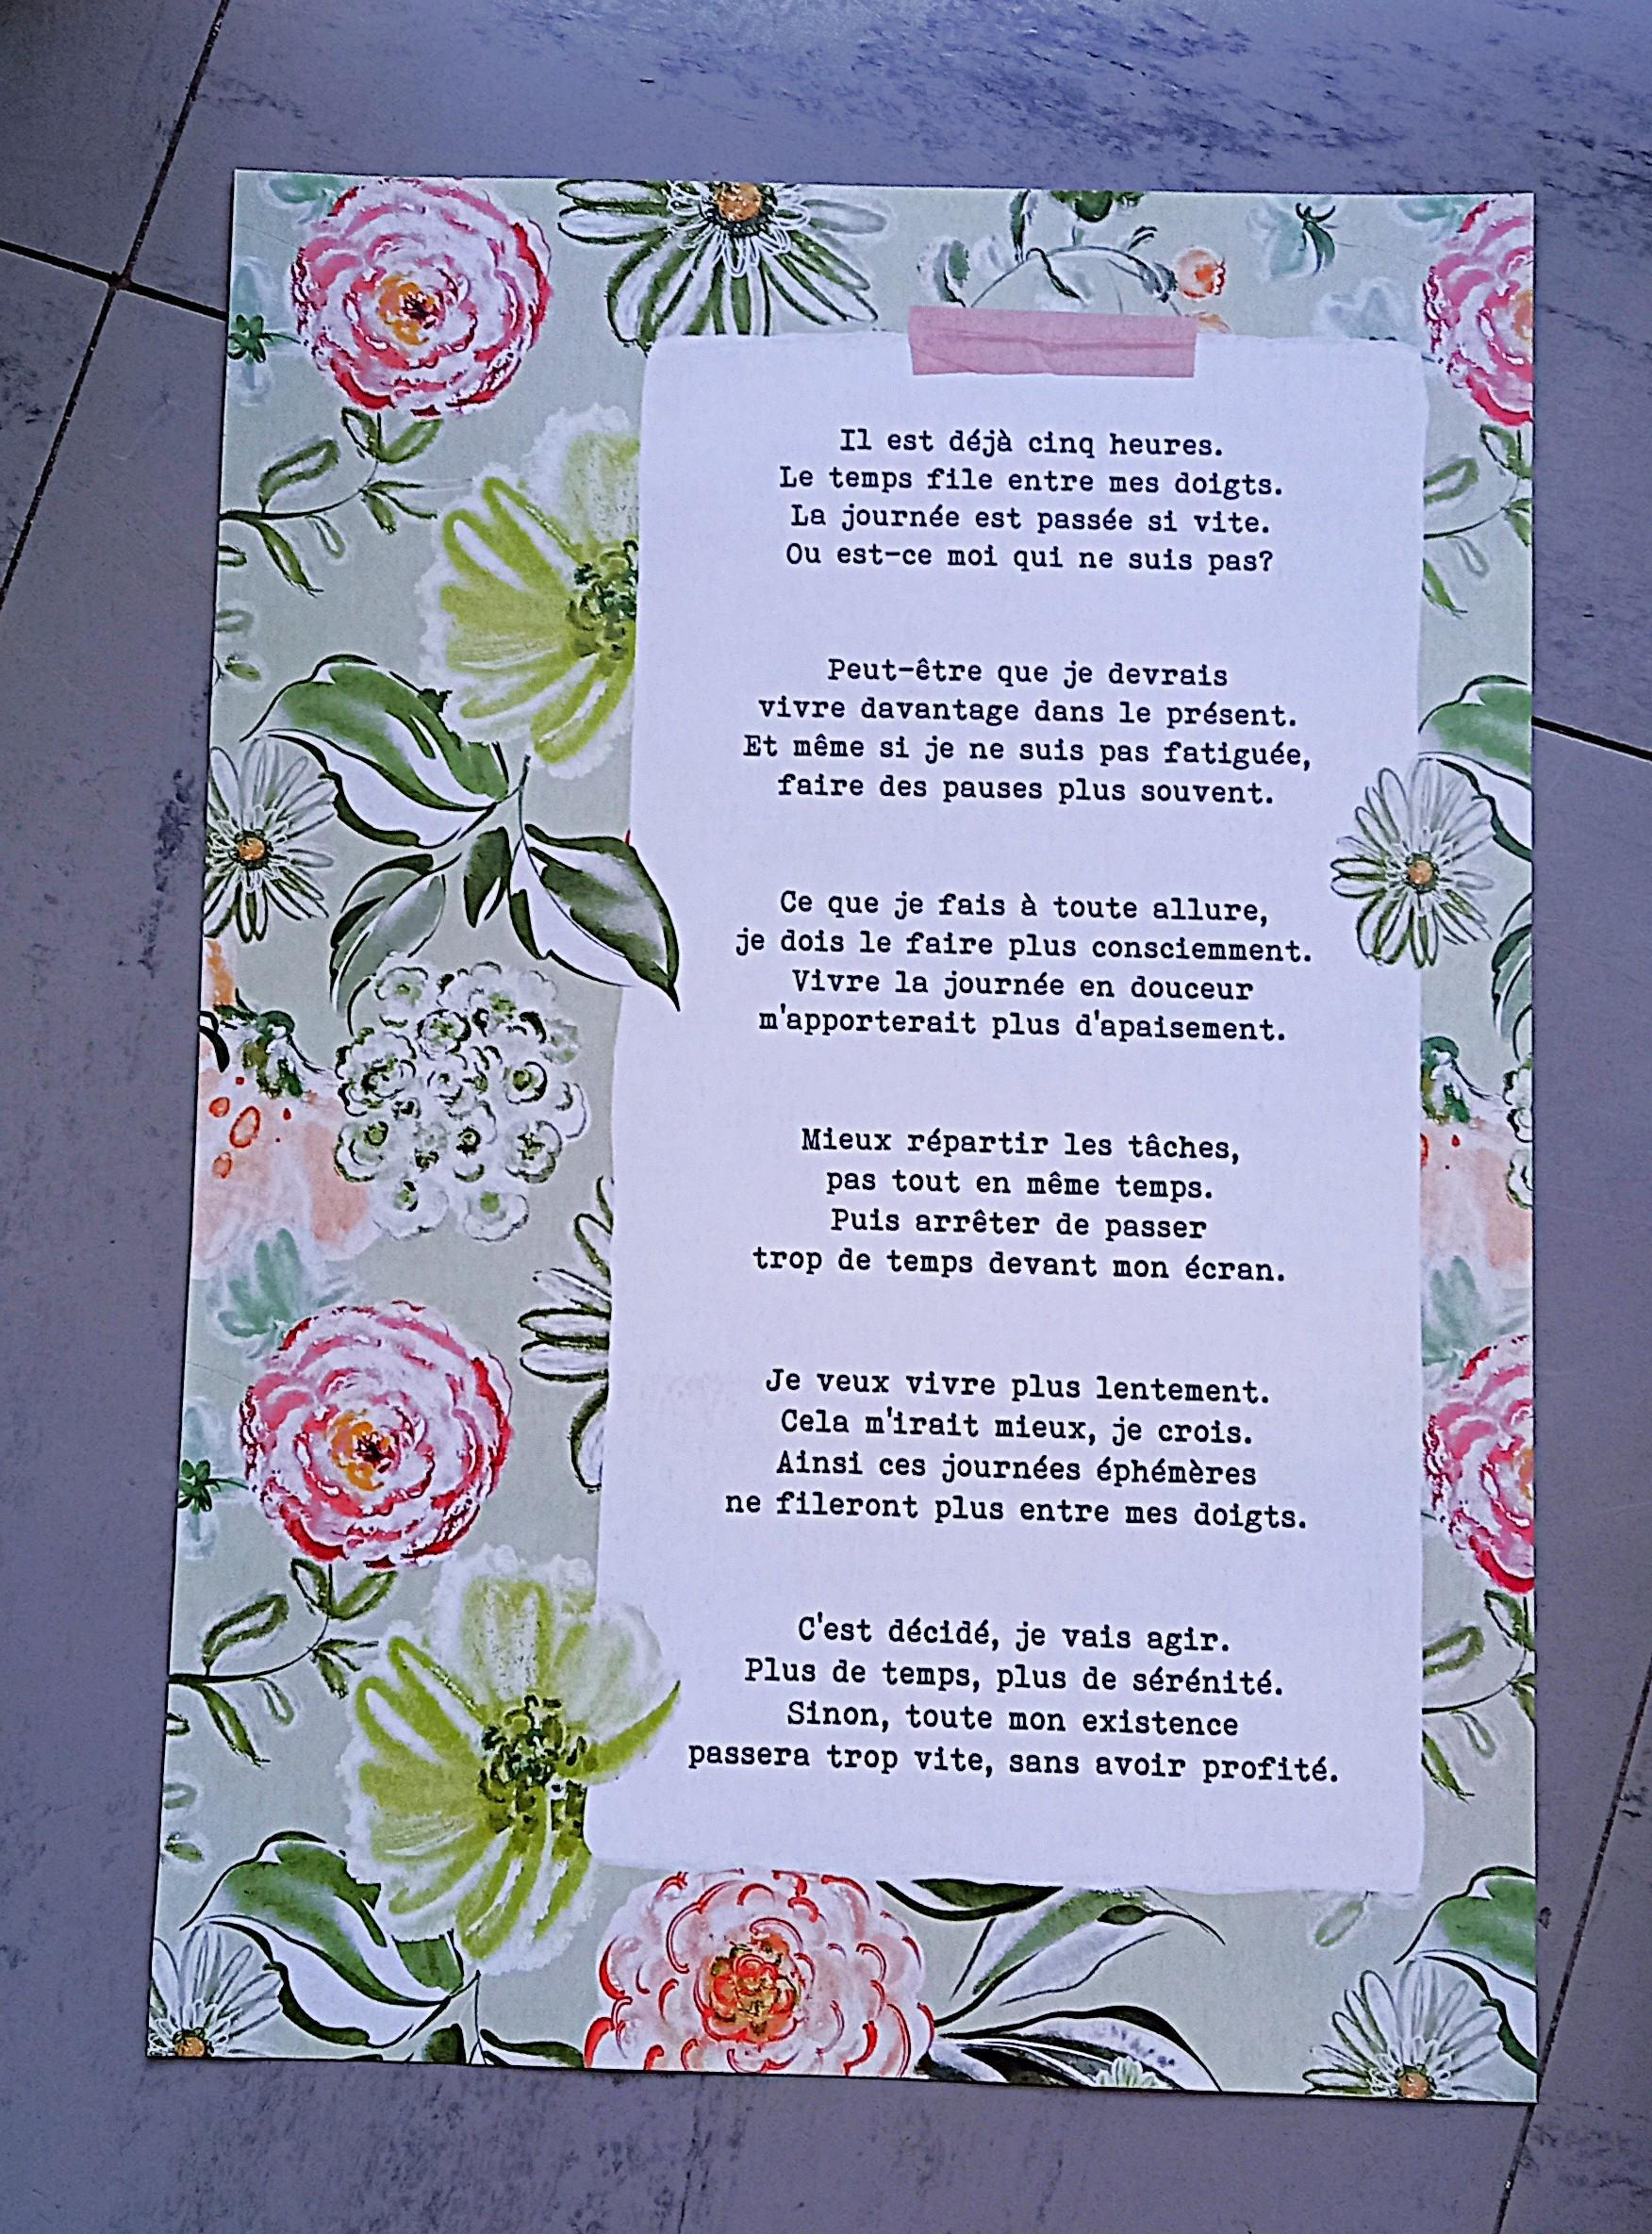 Il est déjà cinq heures.
Le temps file entre mes doigts.
La journée est passée si vite.
Ou est-ce moi qui ne suis pas?
Peut-être que je devrais
vivre davantage dans le présent.
Et même si je ne suis pas fatiguée,
faire des pauses plus souvent.
Ce que je fais à toute allure,
je dois le faire plus consciemment.
Vivre la journée en douceur
m'apporterait plus d'apaisement.
Mieux répartir les tâches,
pas tout en même temps.
Puis arrêter de passer
trop de temps devant mon écran.
Je veux vivre plus lentement.
Cela m'irait mieux, je crois.
Ainsi ces journées éphémères
ne fileront plus entre mes doigts.
C'est décidé, je vais agir.
Plus de temps, plus de sérénité.
Sinon, toute mon existence
passera trop vite, sans avoir profité.